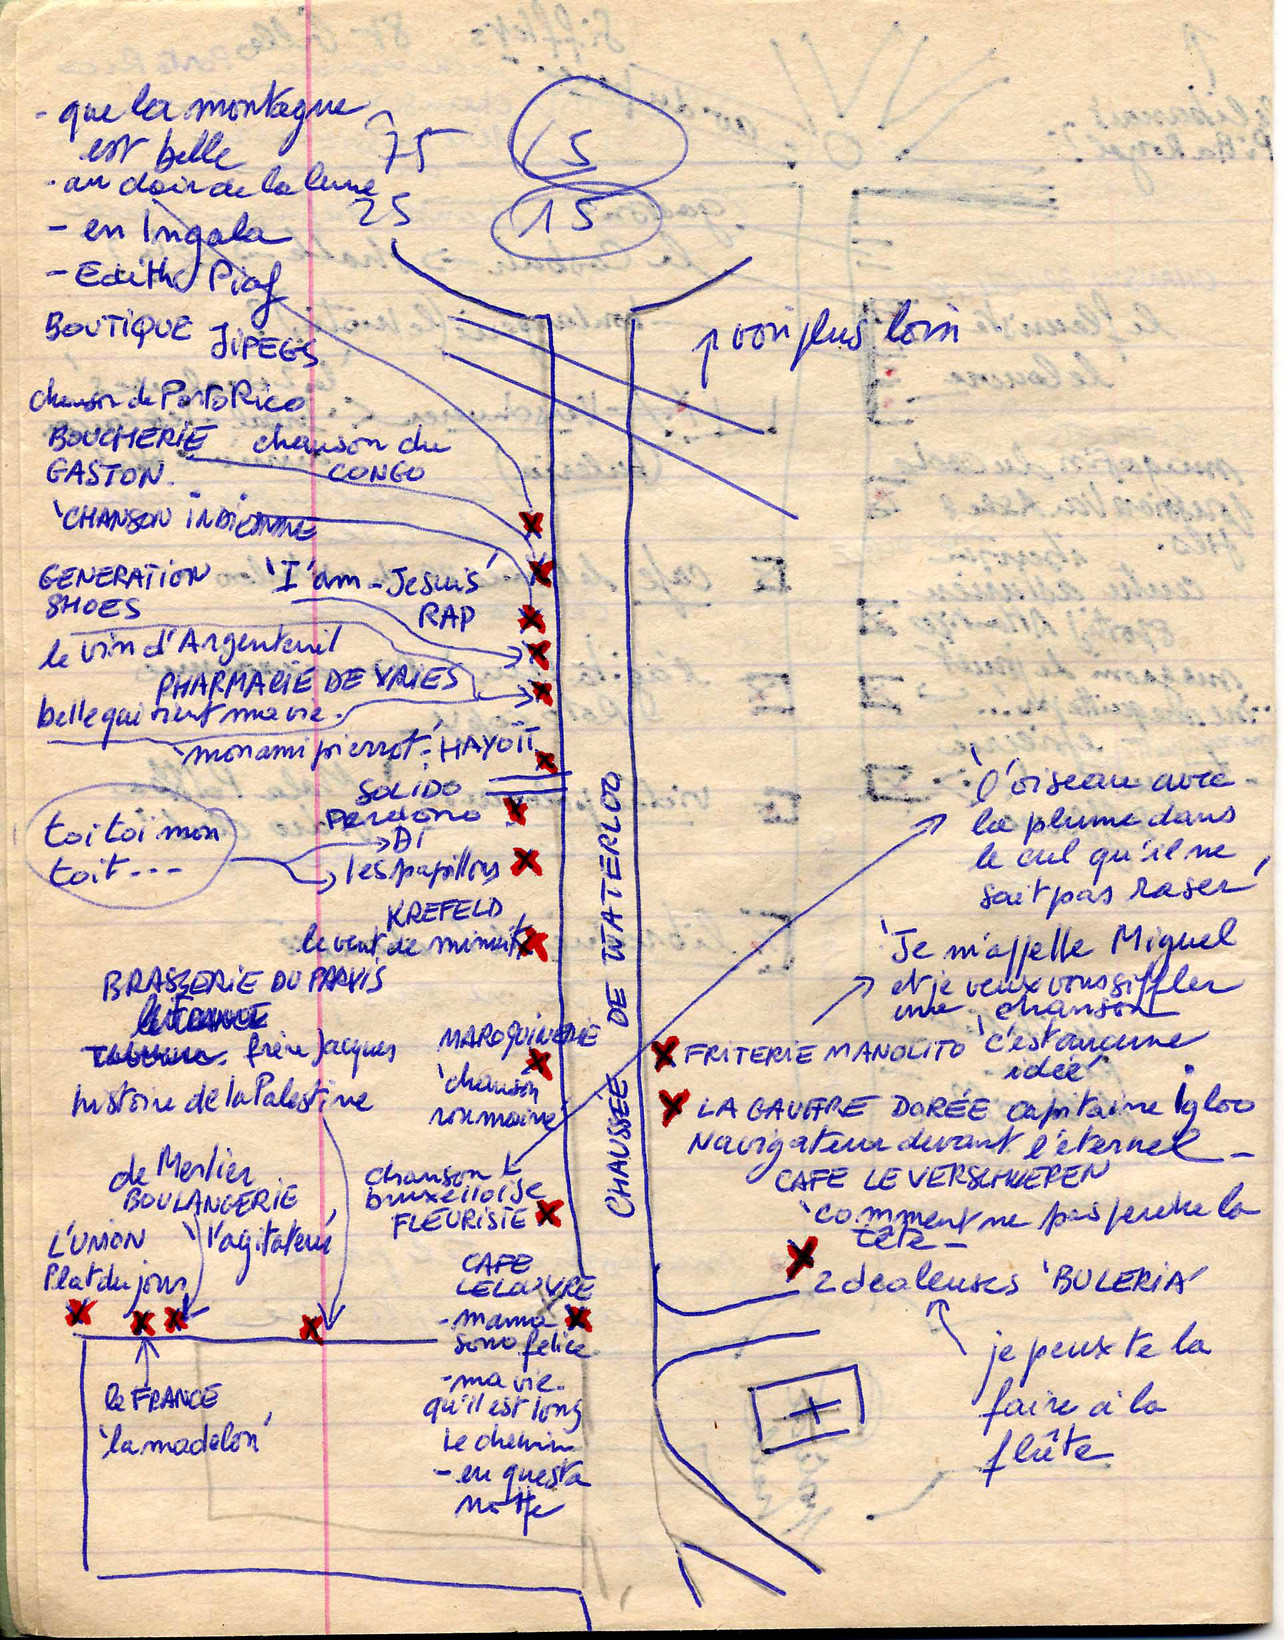 - que la montagne
est belle
- au clair de la lune
- en lingala
- Edith Piaf
75
15
25
15
BOUTIQUE JIPEGS
chanson de Porto Rico
BOUCHERIE
GASTON
chanson du
CONGO
'CHANSON INDIENNE
GENERATION
SHOES
'I'am - Je suis'
RAP
le vin d'Argenteuil
PHARMACIE DE VRIES
belle qui tient ma vie.
'mon ami pierrot' HAYOIT
SOLIDO
Perdono
toi toi mon
toit ---
DI
les papillons
KREFELD
le vent de minuit
BRASSERIE DU PARVIS
frère Jacques
histoire de la Palestine
MAROQUINERIE
'chanson
roumaine'
de Merlier
BOULANGERIE
'l'agitateur'
L'UNION
Plat du jour
chanson
bruxelloise
FLEURISTE
CAFE
LE LOUVRE
- mama
sono felice
- ma vie.
qu'il est long
le chemin
- en questa
notte
le FRANCE
'la madelon'
CHAUSSEE DE WATERLOO
↑ voir plus loin
'l'oiseau avec
la plume dans
le cul qu'il ne
sait pas raser'
'Je m'appelle Miguel
et je veux vous siffler
une chanson
FRITERIE MANOLITO 'c'est aucune
idée'
LA GAUFRE DORÉE capitaine Igloo
Navigateur devant l'éternel -
CAFE LE VERSCHUEREN
'comment ne pas perdre la
tête -
2 dealeuses 'BULERIA'
je peux te la
faire à la
flûte